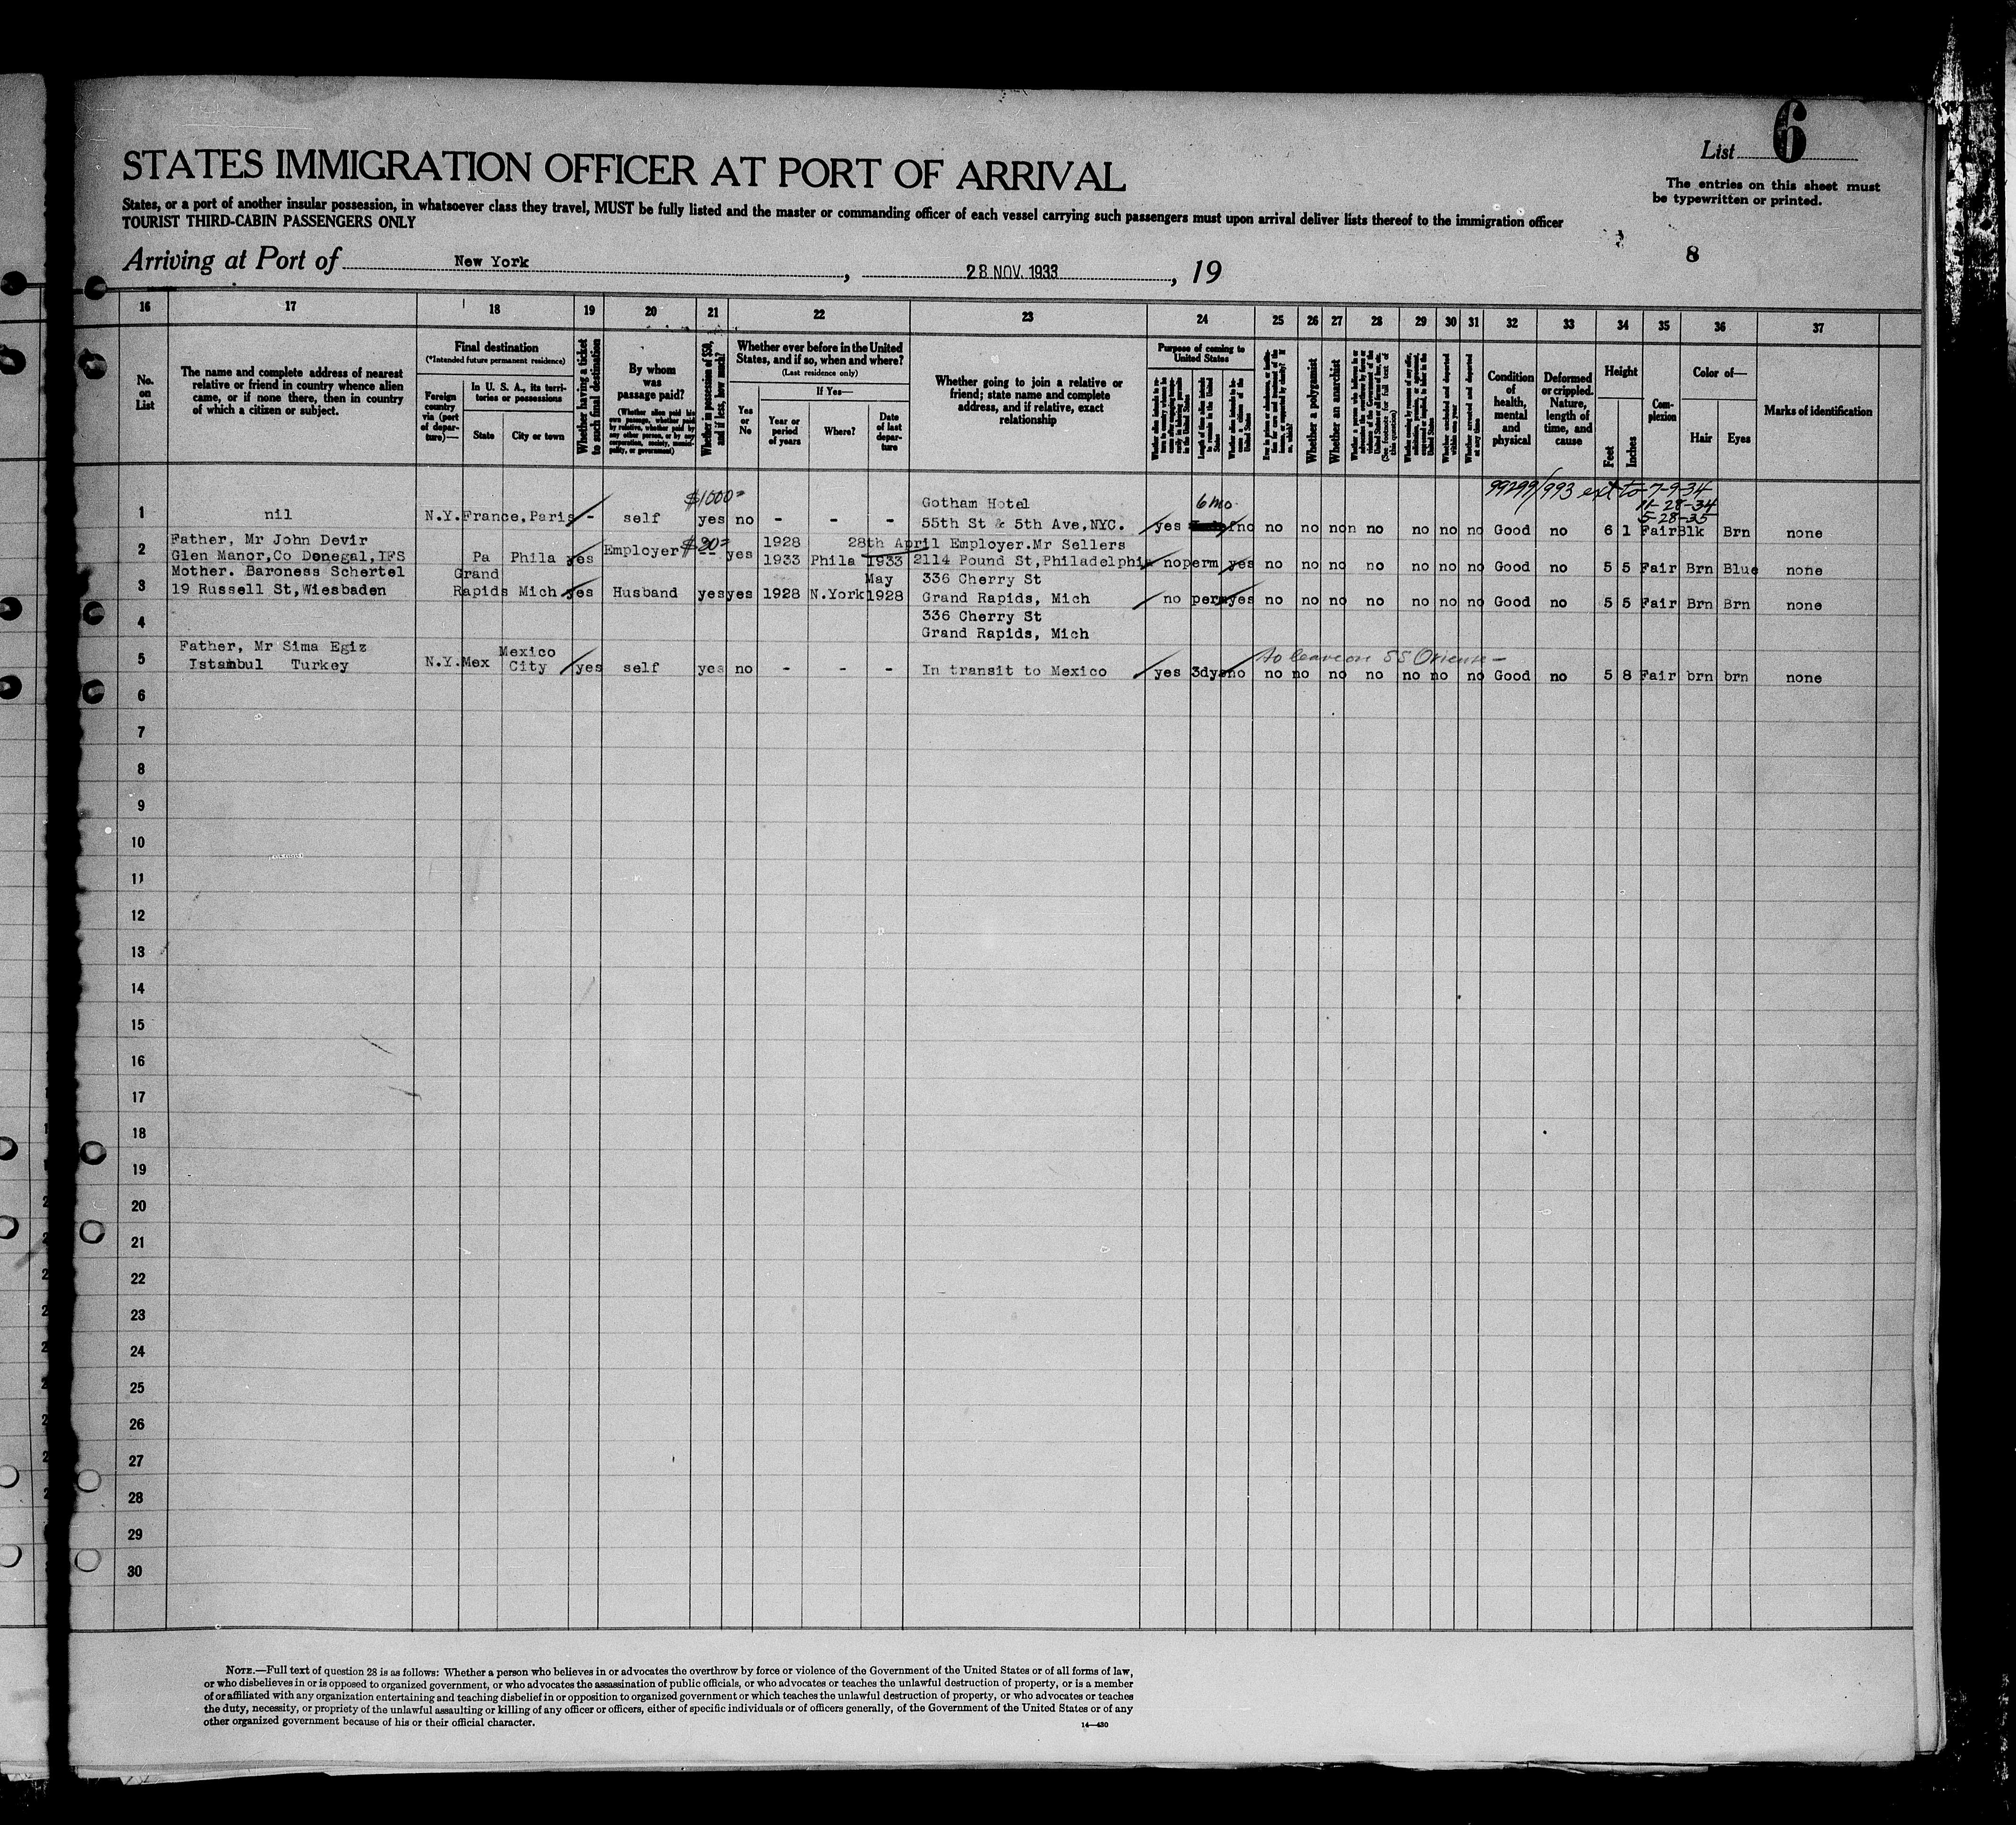 List 6
STATES IMMIGRATION OFFICER AT PORT OF ARRIVAL
The entries on this sheet must
be typewritten or printed.
States, or a port of another insular possession, in whatsoever class they travel, MUST be fully listed and the master or commanding officer of each vessel carrying such passengers must upon arrival deliver lists thereof to the immigration officer
TOURIST THIRD-CABIN PASSENGERS ONLY
8
Arriving at Port of New York, 28 NOV. 1933, 19
16 17 18 19 20 21 22 23 24 25 26 27 28 29 30 31 32 33 34 35 36 37
No. on List
The name and complete address of nearest
relative or friend in country whence alien
came, or if none there, then in country
of which a citizen or subject.
Final destination
(*Intended future permanent residence)
Foreign country via (port of departure)—
In U. S. A., its territories or possessions
State
City or town
Whether having a ticket to such final destination
By whom was passage paid?
(Whether alien paid his own passage, whether paid by relative, whether paid by any other person, or by any corporation, society, municipality, or government)
Whether in possession of $50, and if less, how much?
Whether ever before in the United
States, and if so, when and where?
(Last residence only)
Yes or No
If Yes—
Year or period of years
Where?
Date of last departure
Whether going to join a relative or
friend; state name and complete
address, and if relative, exact
relationship
Purpose of coming to United States
Length of time alien intends to remain in the United States
Whether alien intends to become a citizen of the United States
Whether a polygamist
Whether an anarchist
(See footnote for full text of this question)
Whether arrested and deported at any time
Condition of health, mental and physical
Deformed or crippled. Nature, length of time, and cause
Height
Feet
Inches
Complexion
Color of—
Hair
Eyes
Marks of identification
$1000 6 mo. 99299/993 ext to 7-9-34
11-28-34
5-28-35
1 nil N.Y. France, Paris - self yes no - - - Gotham Hotel
55th St & 5th Ave, NYC. yes no no no non no no no no Good no 6 1 Fair Blk Brn none
2 Father, Mr John Devir
Glen Manor, Co Donegal, IFS Pa Phila yes Employer $20 yes 1928 1933 Phila 28th April 1933 Employer. Mr Sellers
2114 Pound St, Philadelphia no perm yes no no no no no no no Good no 5 5 Fair Brn Blue none
3 Mother. Baroness Schertel
19 Russell St, Wiesbaden Grand Rapids Mich yes Husband yes yes 1928 N.York May 1928 336 Cherry St
Grand Rapids, Mich no perm yes no no no no no no no Good no 5 5 Fair Brn Brn none
4 336 Cherry St
Grand Rapids, Mich
5 Father, Mr Sima Egiz
Istambul Turkey N.Y. Mex Mexico City yes self yes no - - - In transit to Mexico yes 3dys no no no no no no no no Good no 5 8 Fair brn brn none
to leave on SS Oriente
6
7
8
9
10
11
12
13
14
15
16
17
18
19
20
21
22
23
24
25
26
27
28
29
30
NOTE.—Full text of question 28 is as follows: Whether a person who believes in or advocates the overthrow by force or violence of the Government of the United States or of all forms of law,
or who disbelieves in or is opposed to organized government, or who advocates the assassination of public officials, or who advocates or teaches the unlawful destruction of property, or is a member
of or affiliated with any organization entertaining and teaching disbelief in or opposition to organized government or which teaches the unlawful destruction of property, or who advocates or teaches
the duty, necessity, or propriety of the unlawful assaulting or killing of any officer or officers, either of specific individuals or of officers generally, of the Government of the United States or of any
other organized government because of his or their official character.
14—430